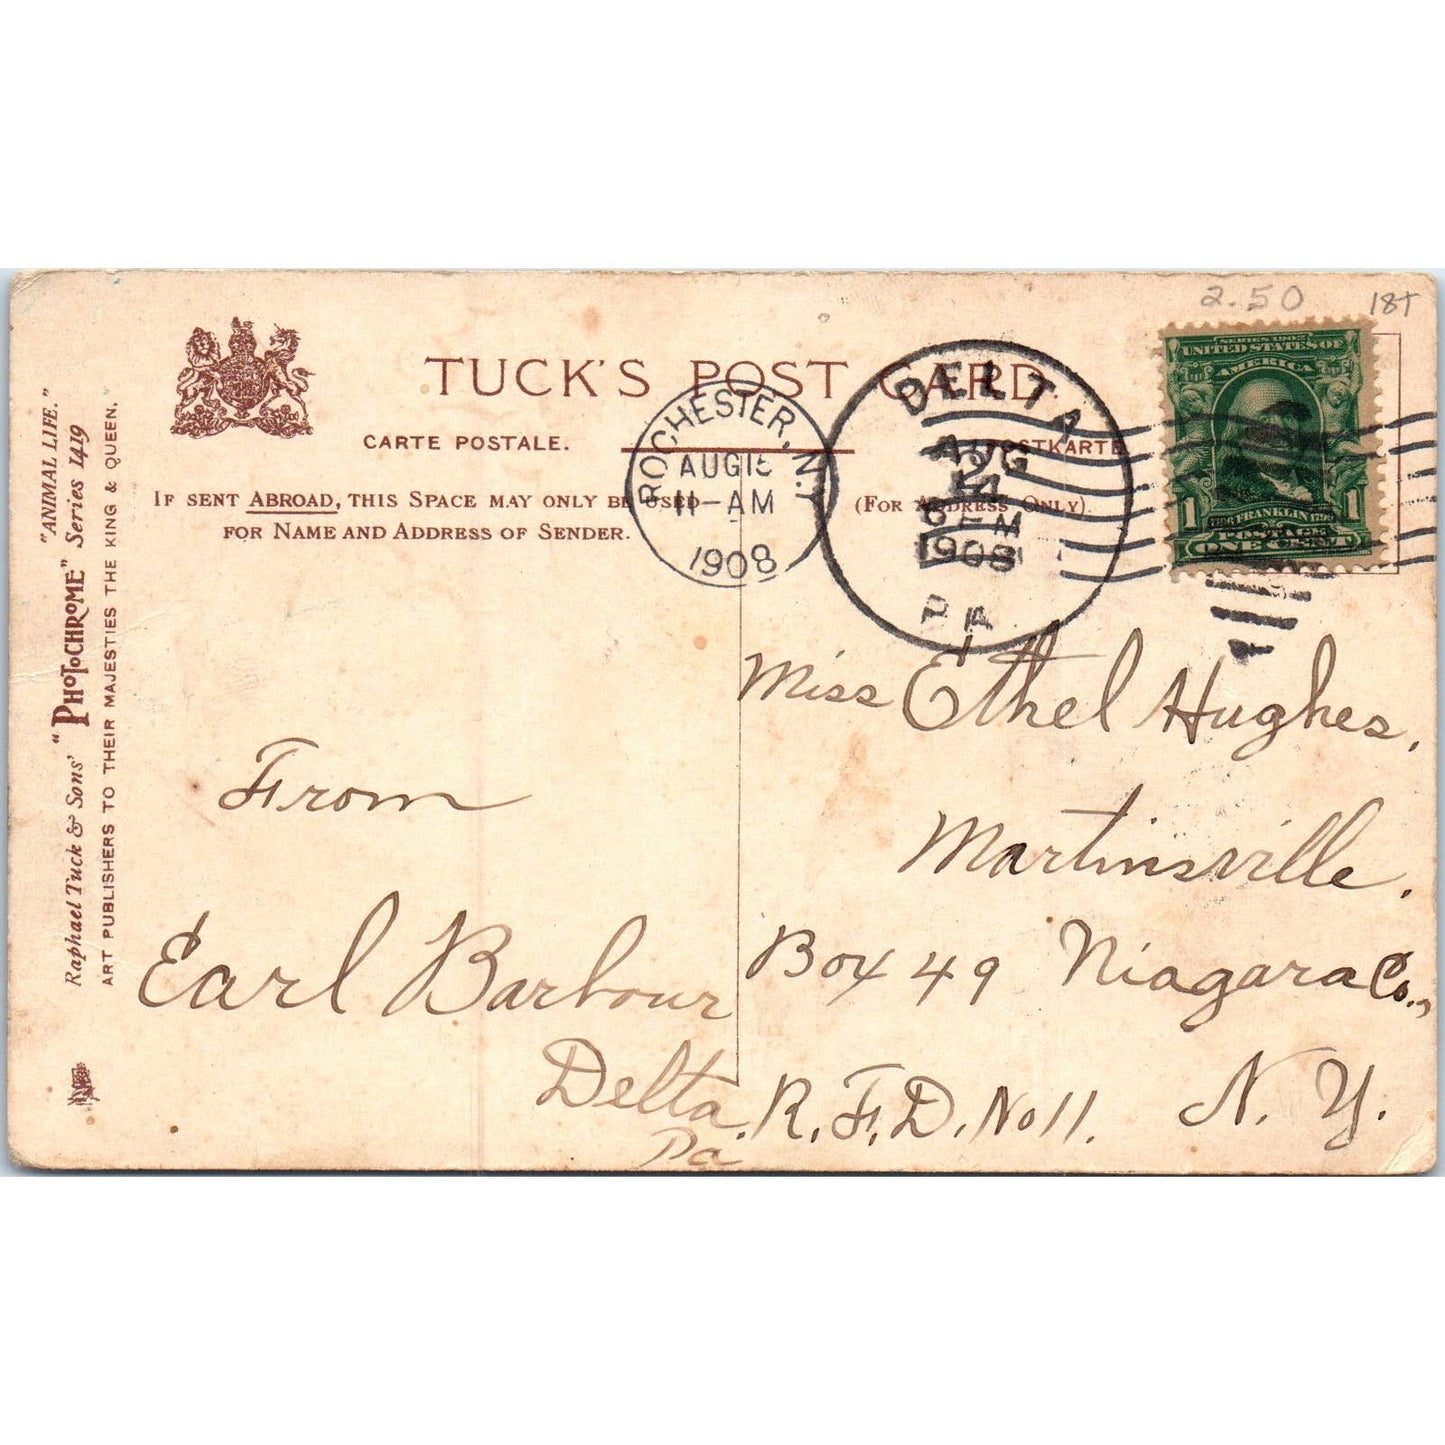 2.50 18t
TUCK'S POST CARD
CARTE POSTALE. POSTKARTE
IF SENT ABROAD, THIS SPACE MAY ONLY BE USED
FOR NAME AND ADDRESS OF SENDER.
(FOR ADDRESS ONLY)
ROCHESTER, N.Y.
AUG 15
11-AM
1908
DELTA
AUG
14
6 PM
1908
PA
SERIES 1902
UNITED STATES OF
AMERICA
FRANKLIN
POSTAGE
1 1
ONE CENT
"ANIMAL LIFE."
Raphael Tuck & Sons' "PHOTOCHROME" Series 1419
ART PUBLISHERS TO THEIR MAJESTIES THE KING & QUEEN.
From
Earl Barbour
Delta.
Pa
Miss Ethel Hughes,
Martinsville.
Box 49 Niagara Co.,
R.F.D. No 11. N. Y.